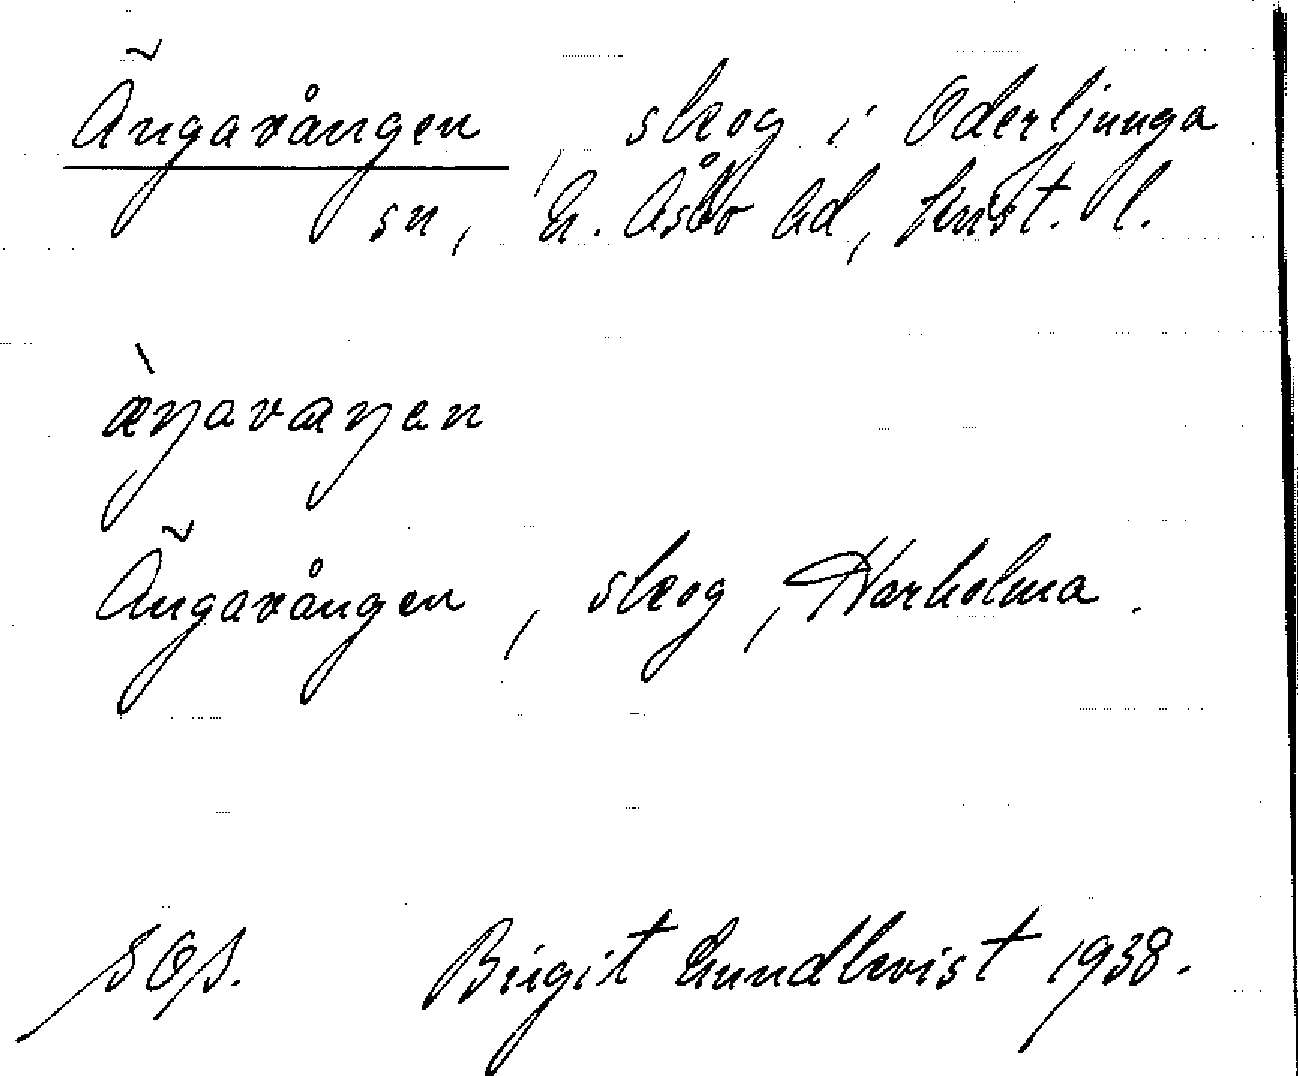 Ängavången, skog i Oderljunga
sn, N. Åsbo hd, Krist. l.
æ̀ŋavaŋen
Ängavången, skog, Harholma.
Birgit Lundkvist 1938.